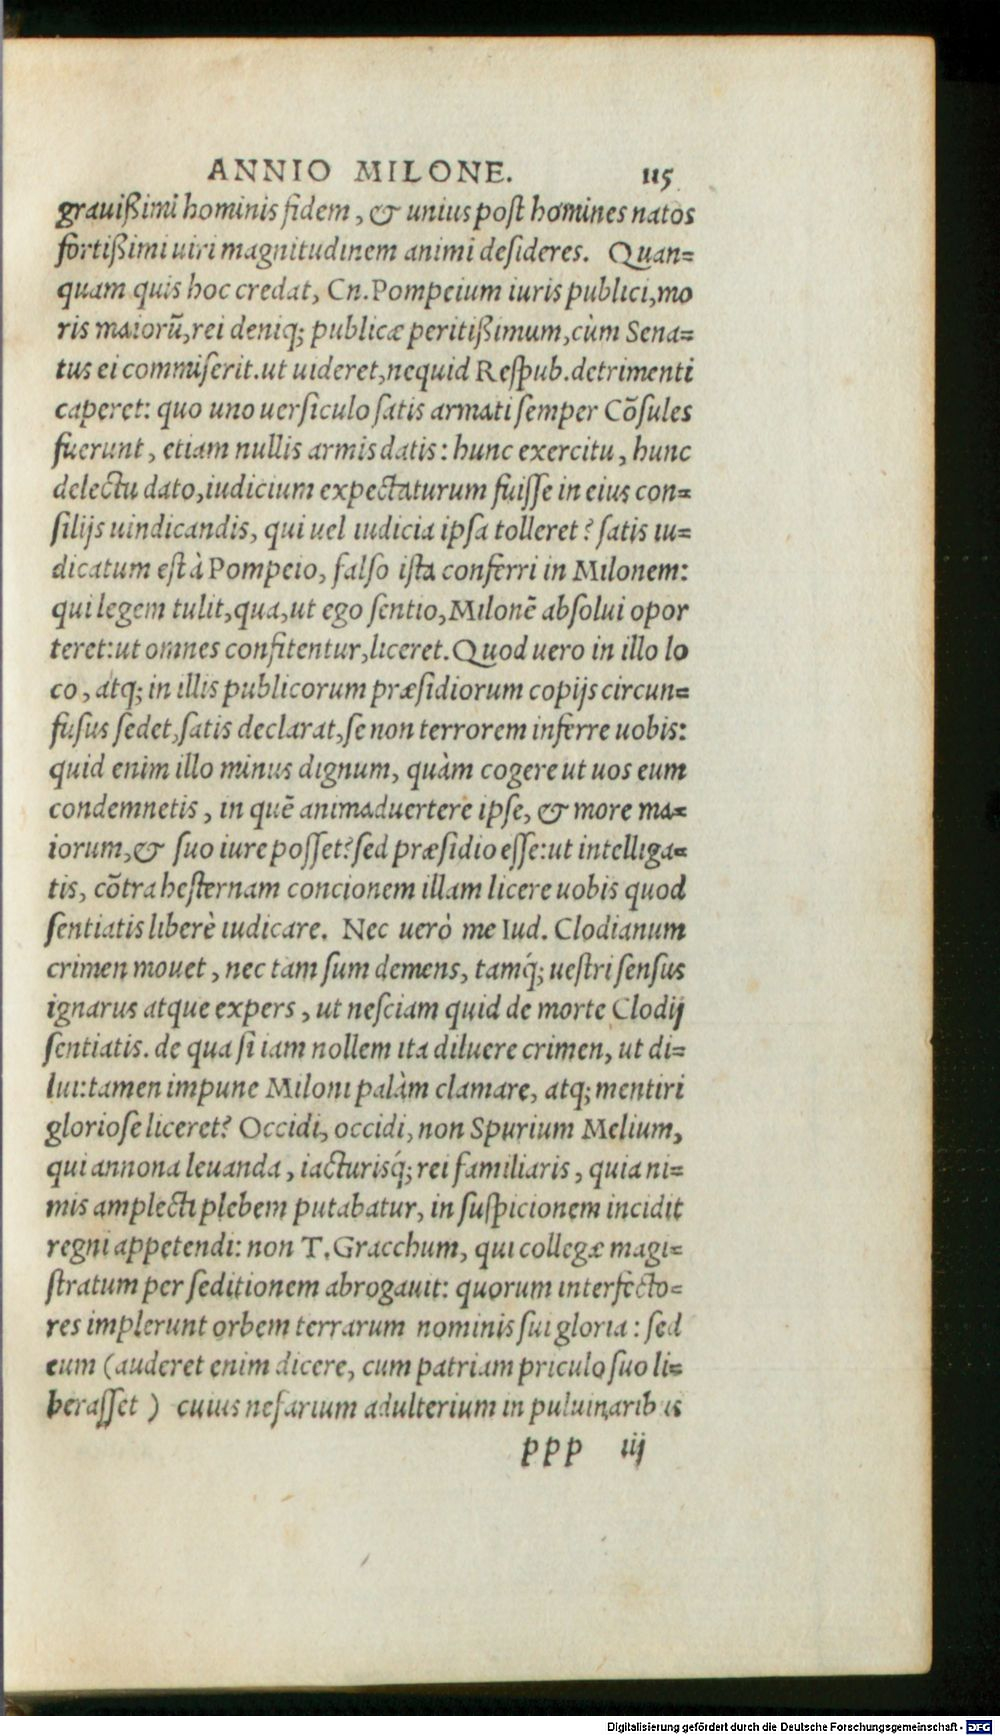 ANNIO MILONE. 115
grauißimi hominis fidem, & unius post homines natos
fortißimi uiri magnitudinem animi desideres. Quan=
quam quis hoc credat, Cn.Pompeium iuris publici,mo
ris maiorũ,rei deniq; publicæ peritißimum,cùm Sena=
tus ei commiserit.ut uideret,nequid Respub.detrimenti
caperet: quo uno uersiculo satis armati semper Cõsules
fuerunt, etiam nullis armis datis: hunc exercitu, hunc
delectu dato,iudicium expectaturum fuisse in eius con=
silijs uindicandis, qui uel iudicia ipsa tolleret? satis iu=
dicatum est à Pompeio, falso ista conferri in Milonem:
qui legem tulit,qua,ut ego sentio,Milonẽ absolui opor
teret:ut omnes confitentur,liceret.Quod uero in illo lo
co, atq; in illis publicorum præsidiorum copijs circun=
fusus sedet,satis declarat,se non terrorem inferre uobis:
quid enim illo minus dignum, quàm cogere ut uos eum
condemnetis, in quẽ animaduertere ipse, & more ma=
iorum,& suo iure posset?sed præsidio esse:ut intelliga=
tis, cõtra hesternam concionem illam licere uobis quod
sentiatis liberè iudicare. Nec uerò me Iud. Clodianum
crimen mouet, nec tam sum demens, tamq́; uestri sensus
ignarus atque expers, ut nesciam quid de morte Clodij
sentiatis. de qua si iam nollem ita diluere crimen, ut di=
lui:tamen impune Miloni palàm clamare, atq; mentiri
gloriose liceret? Occidi, occidi, non Spurium Melium,
qui annona leuanda, iacturisq́; rei familiaris, quia ni=
mis amplecti plebem putabatur, in suspicionem incidit
regni appetendi: non T.Gracchum, qui collegæ magi=
stratum per seditionem abrogauit: quorum interfecto=
res implerunt orbem terrarum nominis sui gloria: sed
eum (auderet enim dicere, cum patriam priculo suo li=
berasset) cuius nefarium adulterium in puluinarib us
ppp iij
Digitalisierung gefördert durch die Deutsche Forschungsgemeinschaft - DFG